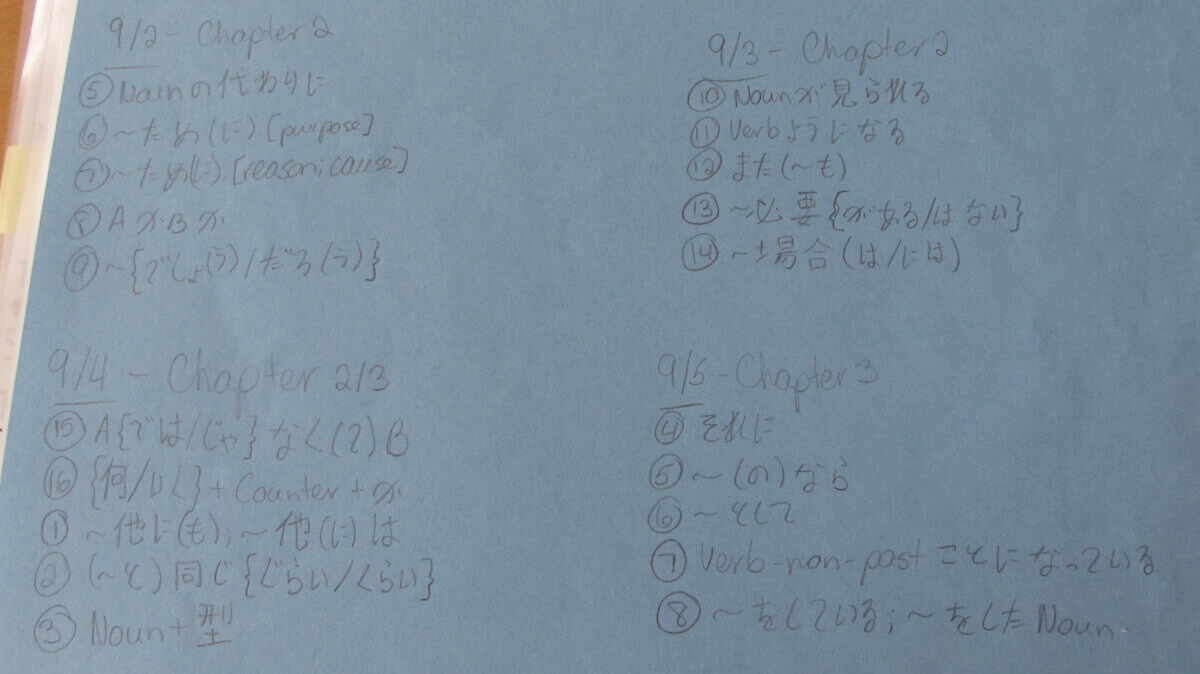 9/2 - Chapter 2
⑤ Nounの代わりに
⑥ ~ため(に) [purpose]
⑦ ~ため(に) [reason; cause]
⑧ AかBか
⑨ ~{でしょ(う)/だろ(う)}
9/3 - Chapter 2
⑩ Nounが見られる
⑪ Verbようになる
⑫ また(~も)
⑬ ~必要{がある/はない}
⑭ ~場合(は/には)
9/4 - Chapter 2/3
⑮ A{では/じゃ}なく(て)B
⑯ {何/いく}+Counter+か
① ~他に(も); ~他(に)は
② (~と)同じ{ぐらい/くらい}
③ Noun+型
9/5 - Chapter 3
④ それに
⑤ ~(の)なら
⑥ ~として
⑦ Verb-non-past ことになっている
⑧ ~をしている; ~をした Noun